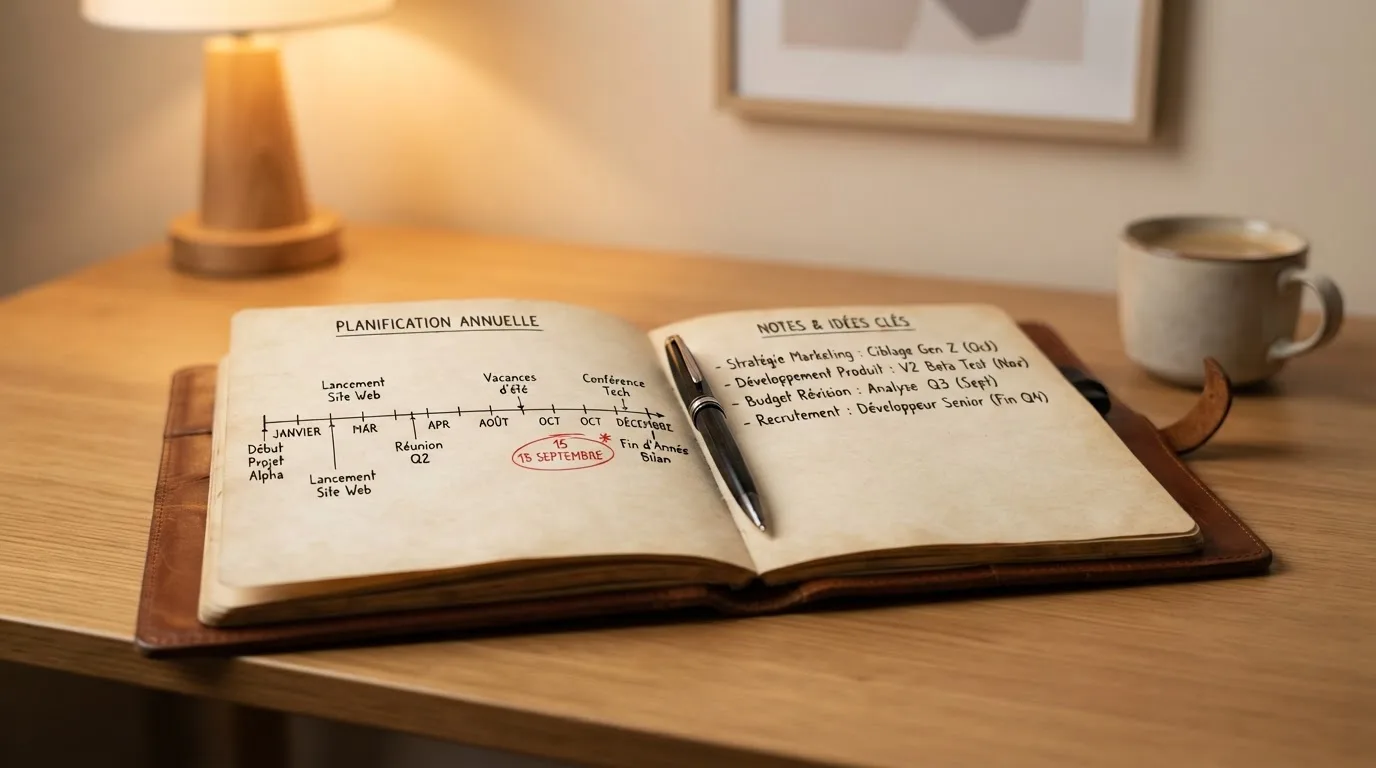 PLANIFICATION ANNUELLE
Lancement
Site Web
Vacances
d'été
Conférence
Tech
JANVIER
MAR
APR
AOÛT
OCT
OCT
DÉCEMBRE
Début
Projet
Alpha
Lancement
Site Web
Réunion
Q2
15
15 SEPTEMBRE
*
Fin d'Année
Bilan
NOTES & IDÉES CLÉS
- Stratégie Marketing : Ciblage Gen Z
- Développement Produit : V2 Beta Test (Nov)
- Budget Révision : Analyse Q3 (Sept)
- Recrutement : Développeur Senior (Fin Q4)